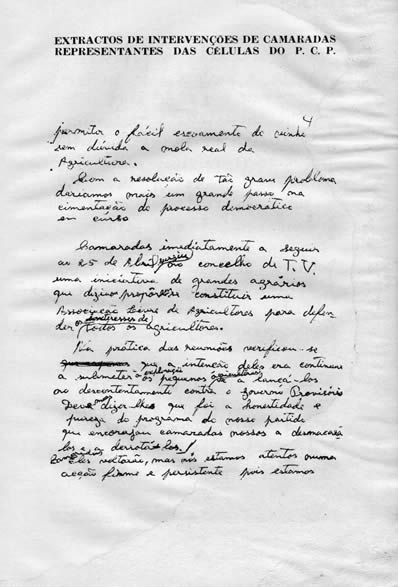 EXTRACTOS DE INTERVENÇÕES DE CAMARADAS
REPRESENTANTES DAS CÉLULAS DO P. C. P.
4
permitir o fácil escoamento do vinho
sem dúvida a mola real da
Agricultura.
Com a resolução de tão grave problema
daríamos mais um grande passo na
cimentação do processo democrático
em curso
Camaradas imediatamente a seguir
ao 25 de Abril surgiu no concelho de T. V.
uma iniciativa de grandes agrários
que diziam constituir uma
Associação Livre de Agricultores para defen
der os interesses de todos os agricultores.
Na prática das reuniões verificou-se
que a intenção deles era continuar
a submeter à exploração os pequenos agricultores e a lançá-los
ao descontentamento contra o Governo Provisório
Devo dizer-lhes que foi a honestidade e
pureza do programa do nosso partido
que encorajou camaradas nossos a desmascará
los e derrotá-los
Camaradas Eles voltarão, mas nós estamos atentos numa
acção firme e persistente pois estamos